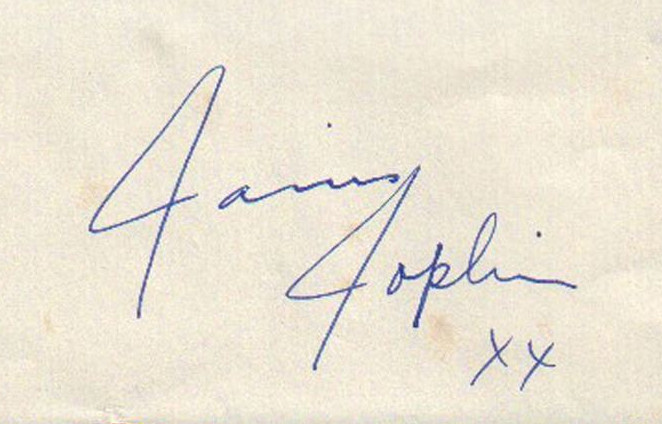 Janis
Joplin
xx